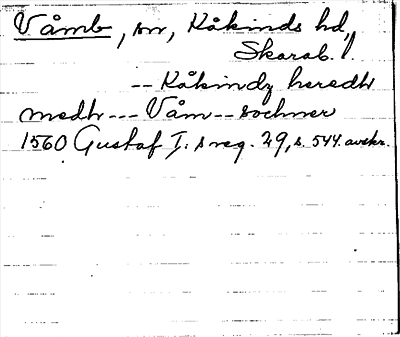 Våmb, sn, Kåkinds hd,
Skarab. l.
-- Kåkindz heredh
medh --- Våm -- sochner
1560 Gustaf I:s reg. 29, s. 544. avskr.